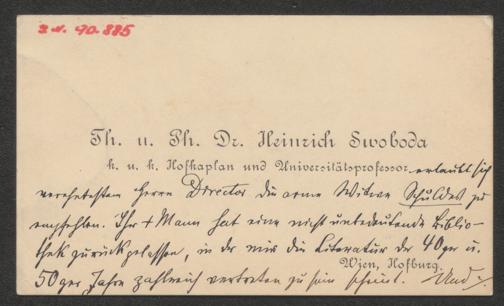 I. N. 90.885
Th. u. Ph. Dr. Heinrich Swoboda
k. u. k. Hofkaplan und Universitätsprofessor erlaubt sich
verehrtesten Herrn Director die arme Witwe Schuldes zu
empfehlen. Ihr + Mann hat eine nicht unbedeutende Biblio-
thek zurückgelassen, in der mir die Literatur der 40ger u.
Wien, Hofburg.
50ger Jahre zahlreich vertreten zu sein scheint.